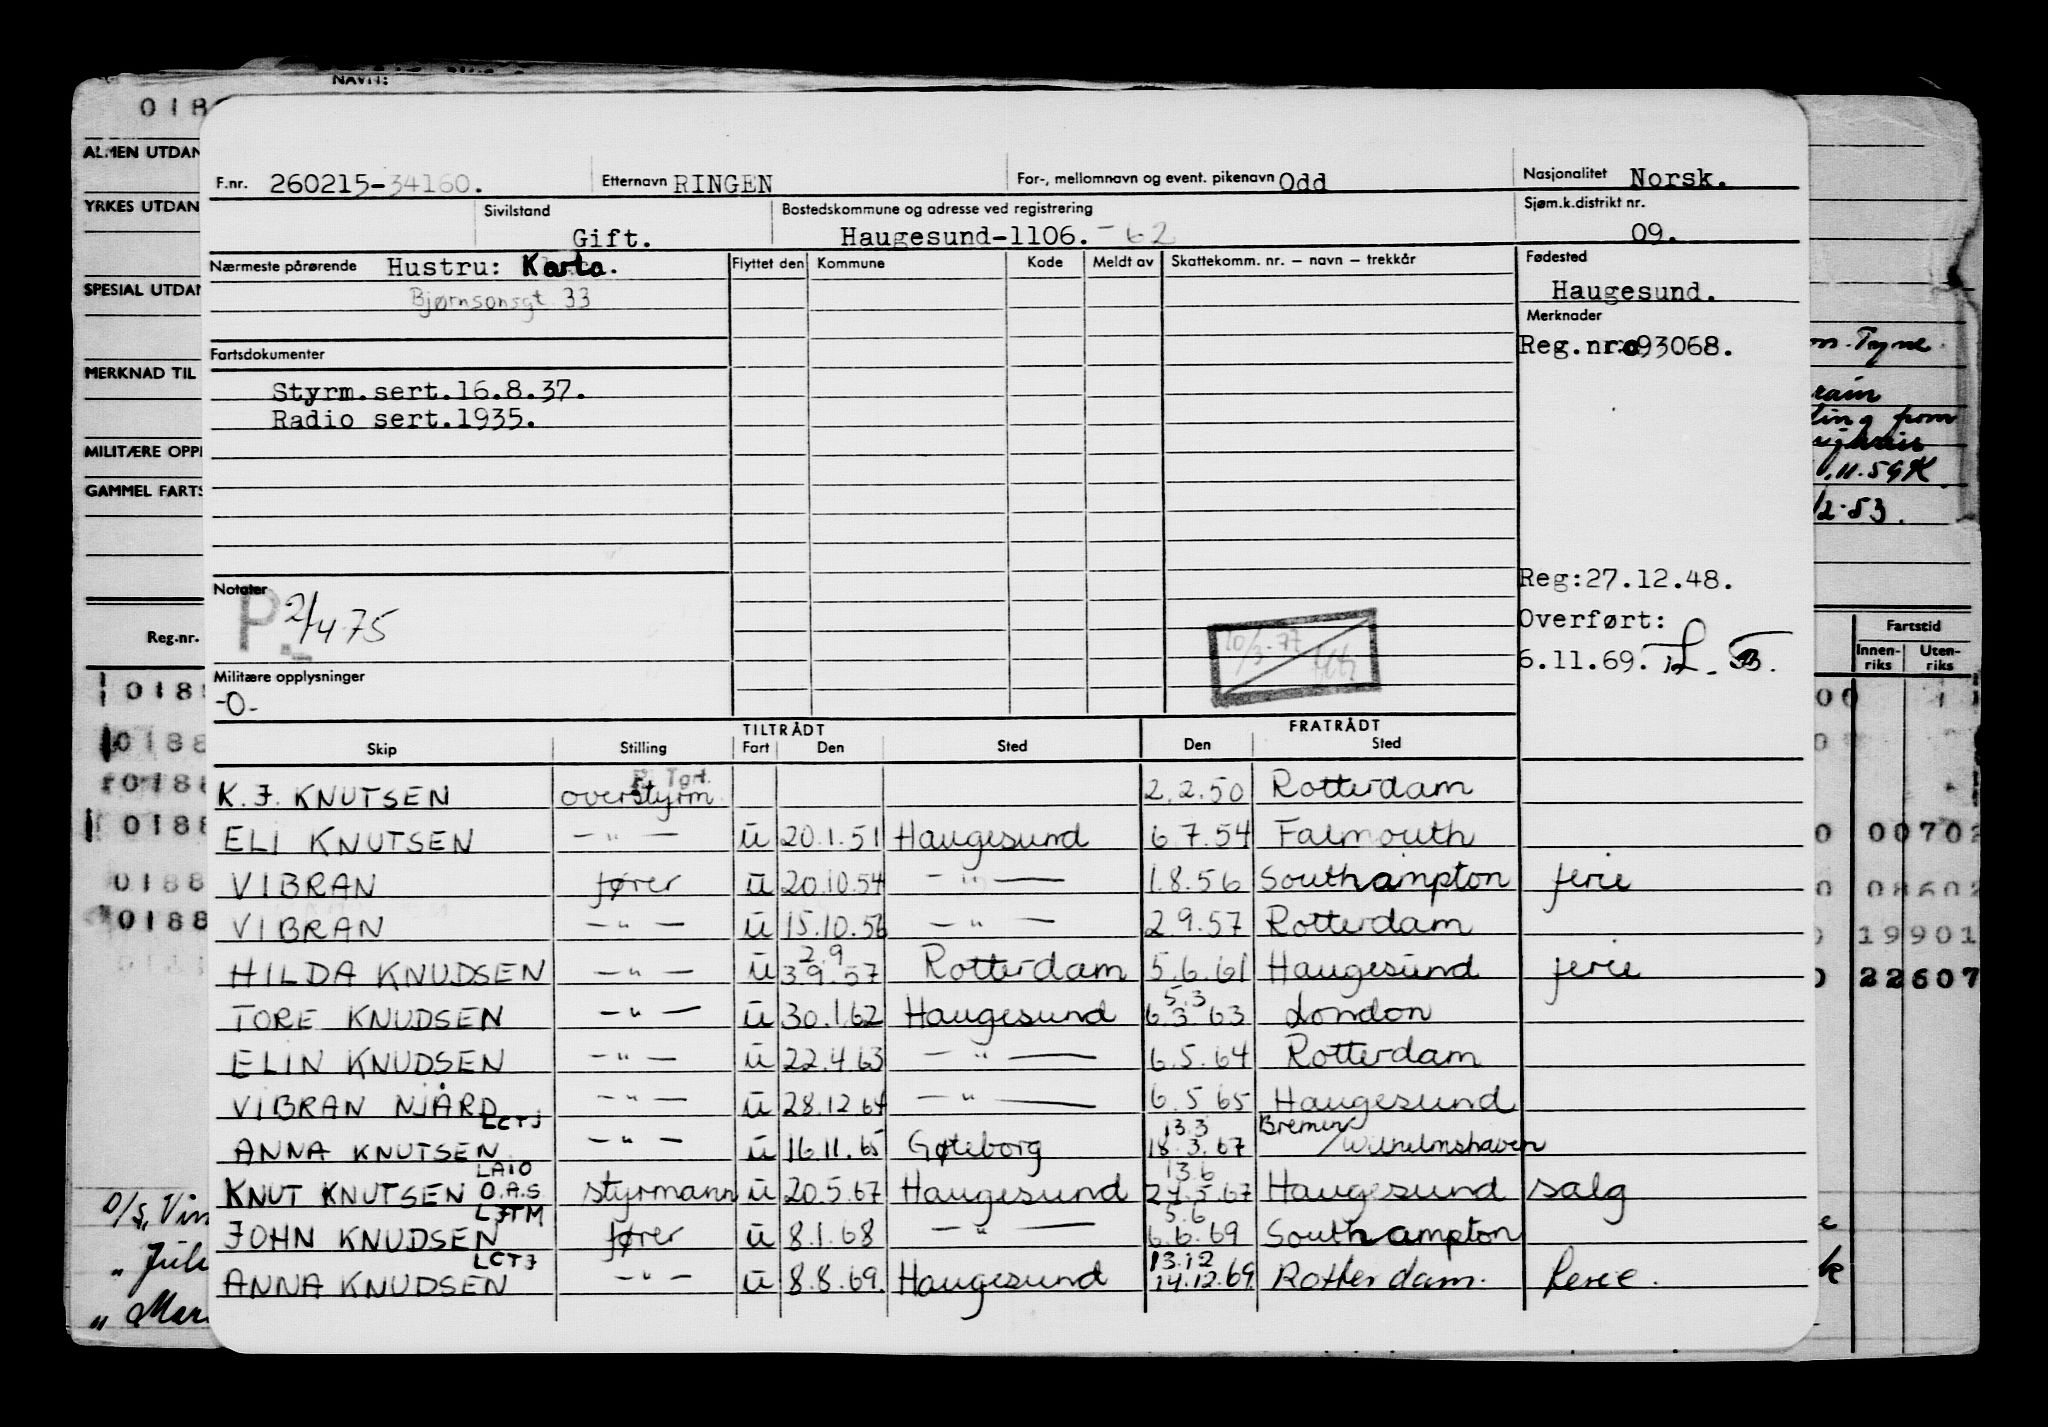 NAVN:
018
ALMEN UTDAN
YRKES UTDAN
SPESIAL UTDAN
MERKNAD TIL
MILITÆRE OPPL
GAMMEL FARTS
Reg.nr.
F.nr. 260215-34160. Etternavn RINGEN For-, mellomnavn og event. pikenavn Odd Nasjonalitet Norsk.
Sivilstand Gift. Bostedskommune og adresse ved registrering Haugesund-1106. -62 Sjøm.k.distrikt nr. 09.
Nærmeste pårørende Hustru: Karta. Flyttet den Kommune Kode Meldt av Skattekomm. nr. – navn – trekkår Fødested
Bjørnsonsgt 33 Haugesund.
Merknader
Reg.nr. 093068.
Fartsdokumenter
Styrm.sert.16.8.37.
Radio sert.1935.
Notater
P. 2/4 75
10/3-77
Reg:27.12.48.
Overført:
6.11.69.
Militære opplysninger
-0-
TILTRÅDT FRATRÅDT
Skip Stilling Fart Den Sted Den Sted
K.J. KNUTSEN overstyrm 2.2.50 Rotterdam
ELI KNUTSEN —"— u 20.1.51 Haugesund 6.7.54 Falmouth
VIBRAN fører u 20.10.54 —"— 1.8.56 Southampton ferie
VIBRAN —"— u 15.10.56 —"— 2.9.57 Rotterdam
2.9
HILDA KNUDSEN —"— u 3.9.57 Rotterdam 5.6.61 Haugesund ferie
5.3
TORE KNUDSEN —"— u 30.1.62 Haugesund 6.3.63 London
ELIN KNUDSEN —"— u 22.4.63 —"— 6.5.64 Rotterdam
VIBRAN NJÅRD —"— u 28.12.64 —"— 6.5.65 Haugesund
LCTJ 13.3 Bremen
ANNA KNUTSEN —"— u 16.11.65 Gøteborg 18.3.67 /Wilhelmshaven
LAIO 13.6
KNUT KNUTSEN O.A.S styrmann u 20.5.67 Haugesund 27.5.67 Haugesund salg
LJTM 5.6
JOHN KNUDSEN fører u 8.1.68 —"— 6.6.69 Southampton
LCTJ 13.12
ANNA KNUDSEN —"— u 8.8.69. Haugesund 14.12.69 Rotterdam. ferie.
Tyne.
from
11.59
12.53.
Fartstid
Innen-riks Uten-riks
00702
08602
19901
22607